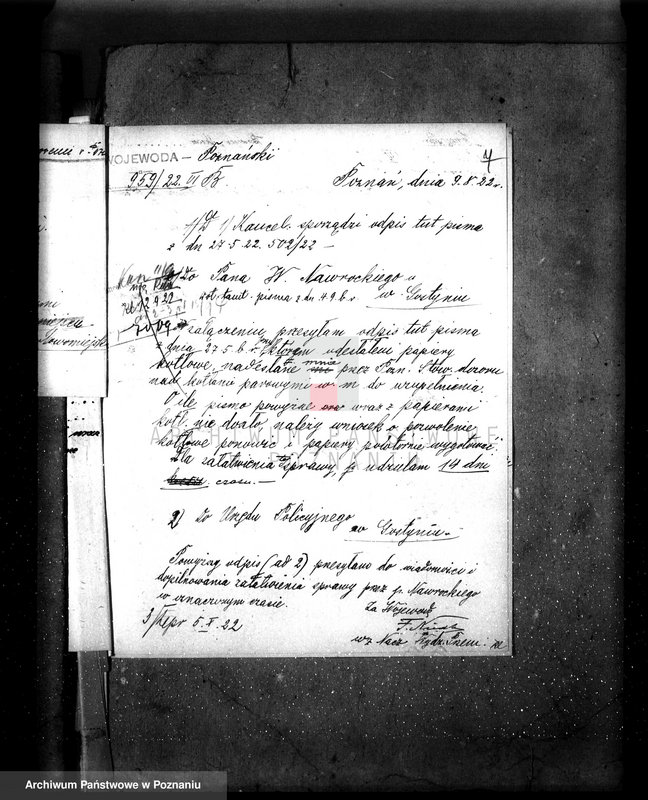 7
WOJEWODA – Poznański
959/22. III B
Poznań, dnia 9.8.22r.
1) Kancel. sporządzi odpis tut pisma
z dn 27 5 22. 502/22 –
Do Pana W. Nawrockiego
w Gostyniu
pisma z dn 4 9 b r
12 9 22
załączeniu przesyłam odpis tut pisma
z dnia 27.5 b. r. odesłałem papiery
kotłowe, nadesłane mnie przez Pozn. Stow. dozoru
nad kotłami parowymi w m do uzupełnienia.
O ile pismo powyższe wraz z papierami
kotł. nie doszło, należy wniosek o pozwolenie
kotłowe ponowić i papiery powtórnie wygotować.
Dla załatwienia sprawy, udzielam 14 dni
czasu. —
2) Do Urzędu Policyjnego
w Gostyniu. –
Powyższy odpis (ad 2) przesyłam do wiadomości i
dopilnowania załatwienia sprawy przez p. Nawrockiego
w oznaczonym czasie.
Za Wojewodę
3/ Repr 5 X 22
wz Nacz Wydz. Przem.
ARCHIWUM PAŃSTWOWE
W POZNANIU
Archiwum Państwowe w Poznaniu